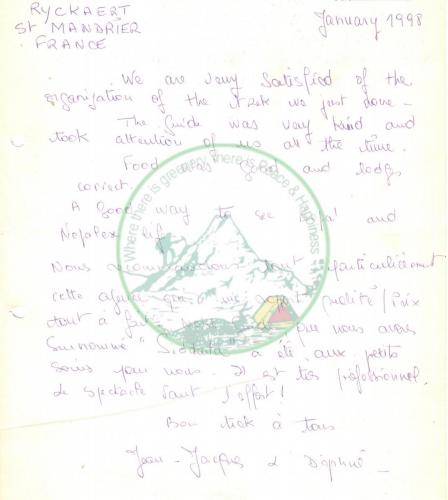 RYCKAERT
St MANDRIER
FRANCE
January 1998
We are very satisfied of the
organization of the trek we just done -
The Guide was very kind and
took attention of us all the time.
Food was good and lodgs
correct.
A good way to see and
Nepalese life
Where there is greenery, there is Peace & Happiness
Nous recommandons tout particulièrement
cette agence qui a un qualité / Prix
tout à fait que nous avons
Surnommé " " a été aux petits
soins pour nous. Il est très professionnel.
Le spectacle vaut l'effort !
Bon trek à tous
Jean-Jacques & Daphné -